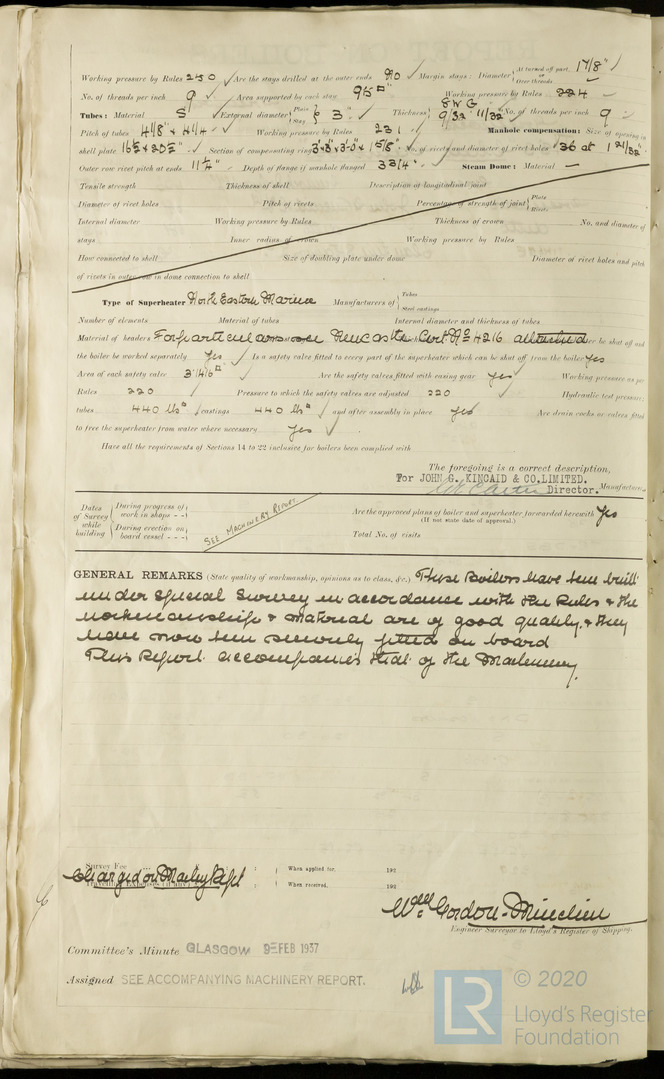 Working pressure by Rules 250 Are the stays drilled at the outer ends No Margin stays: Diameter { At turned off part, 1 7/8" or Over threads
No. of threads per inch 9 Area supported by each stay 95□" Working pressure by Rules 224
Tubes: Material S External diameter { Plain Stay } 3" Thickness { 8 WG 9/32 11/32 No. of threads per inch 9
Pitch of tubes 4 1/8" x 4 1/4 Working pressure by Rules 231 Manhole compensation: Size of opening in
shell plate 16 1/2 x 20 1/2" Section of compensating ring No. of rivets and diameter of rivet holes 36 at 1 21/32"
Outer row rivet pitch at ends 11 1/4" Depth of flange if manhole flanged 3 3/4" Steam Dome: Material —
Tensile strength Thickness of shell Description of longitudinal joint
Diameter of rivet holes Pitch of rivets Percentage of strength of joint { Plate Rivets
Internal diameter Working pressure by Rules Thickness of crown No. and diameter of
stays Inner radius of crown Working pressure by Rules
How connected to shell Size of doubling plate under dome Diameter of rivet holes and pitch
of rivets in outer row in dome connection to shell
Type of Superheater North Eastern Marine Manufacturers of { Tubes Steel castings
Number of elements Material of tubes Internal diameter and thickness of tubes
Material of headers For particulars see Newcastle Cert. No 4216 attached be shut off and
the boiler be worked separately Yes Is a safety valve fitted to every part of the superheater which can be shut off from the boiler Yes
Area of each safety valve 3.1416□" Are the safety valves fitted with easing gear Yes Working pressure as per
Rules 220 Pressure to which the safety valves are adjusted 220 Hydraulic test pressure:
tubes 440 lbs□" castings 440 lbs□" and after assembly in place Yes Are drain cocks or valves fitted
to free the superheater from water where necessary Yes
Have all the requirements of Sections 14 to 22 inclusive for boilers been complied with
The foregoing is a correct description,
For JOHN G. KINCAID & CO. LIMITED.
Director. Manufacturer.
Dates of Survey while building { During progress of work in shops - - During erection on board vessel - - - SEE MACHINERY REPORT Are the approved plans of boiler and superheater forwarded herewith Yes
(If not state date of approval.)
Total No. of visits
GENERAL REMARKS (State quality of workmanship, opinions as to class, &c.) These Boilers have been built
under Special Survey in accordance with the Rules & the
workmanship & material are of good quality, & they
have now been securely fitted on board
This Report accompanies that of the Machinery.
Survey Fee ... When applied for, 192
Charged on Machy Rept
Travelling Expenses (if any) When received, 192
Wm Gordon-Minchin
Engineer Surveyor to Lloyd's Register of Shipping.
Committee's Minute GLASGOW 9 FEB 1937
Assigned SEE ACCOMPANYING MACHINERY REPORT.
LR © 2020
Lloyd's Register
Foundation